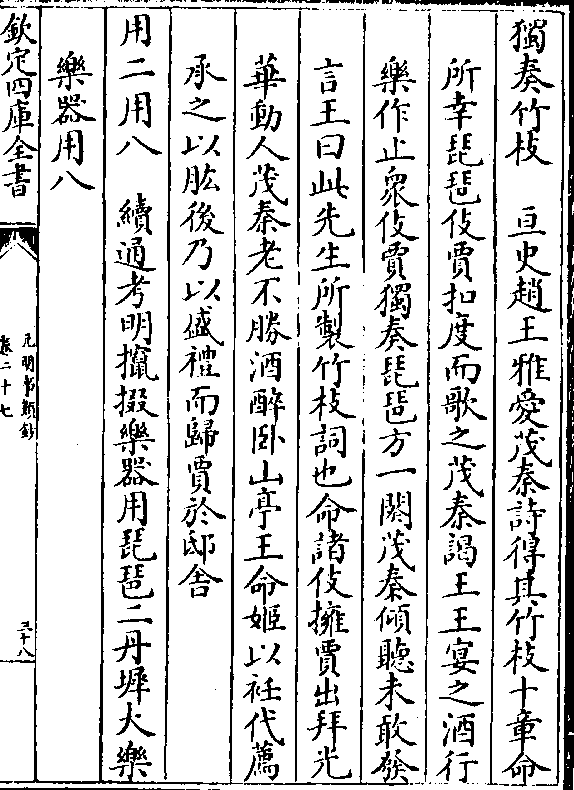 獨奏竹枝　亘史趙王雅愛茂秦詩得其竹枝十章命
所幸琵琶伎賈扣度而歌之茂秦謁王王宴之酒行
樂作止衆伎賈獨奏琵琶方一闋茂秦傾聽未敢發
言王曰此先生所製竹枝詞也命諸伎擁賈出拜光
華動人茂秦老不勝酒醉卧山亭王命姬以袵代薦
承之以肱後乃以盛禮而歸賈於邸舍
用二用八　續通考明攛掇樂器用琵琶二丹墀大樂
樂器用八
欽定四庫全書
元明事類鈔
卷二十七
三十八